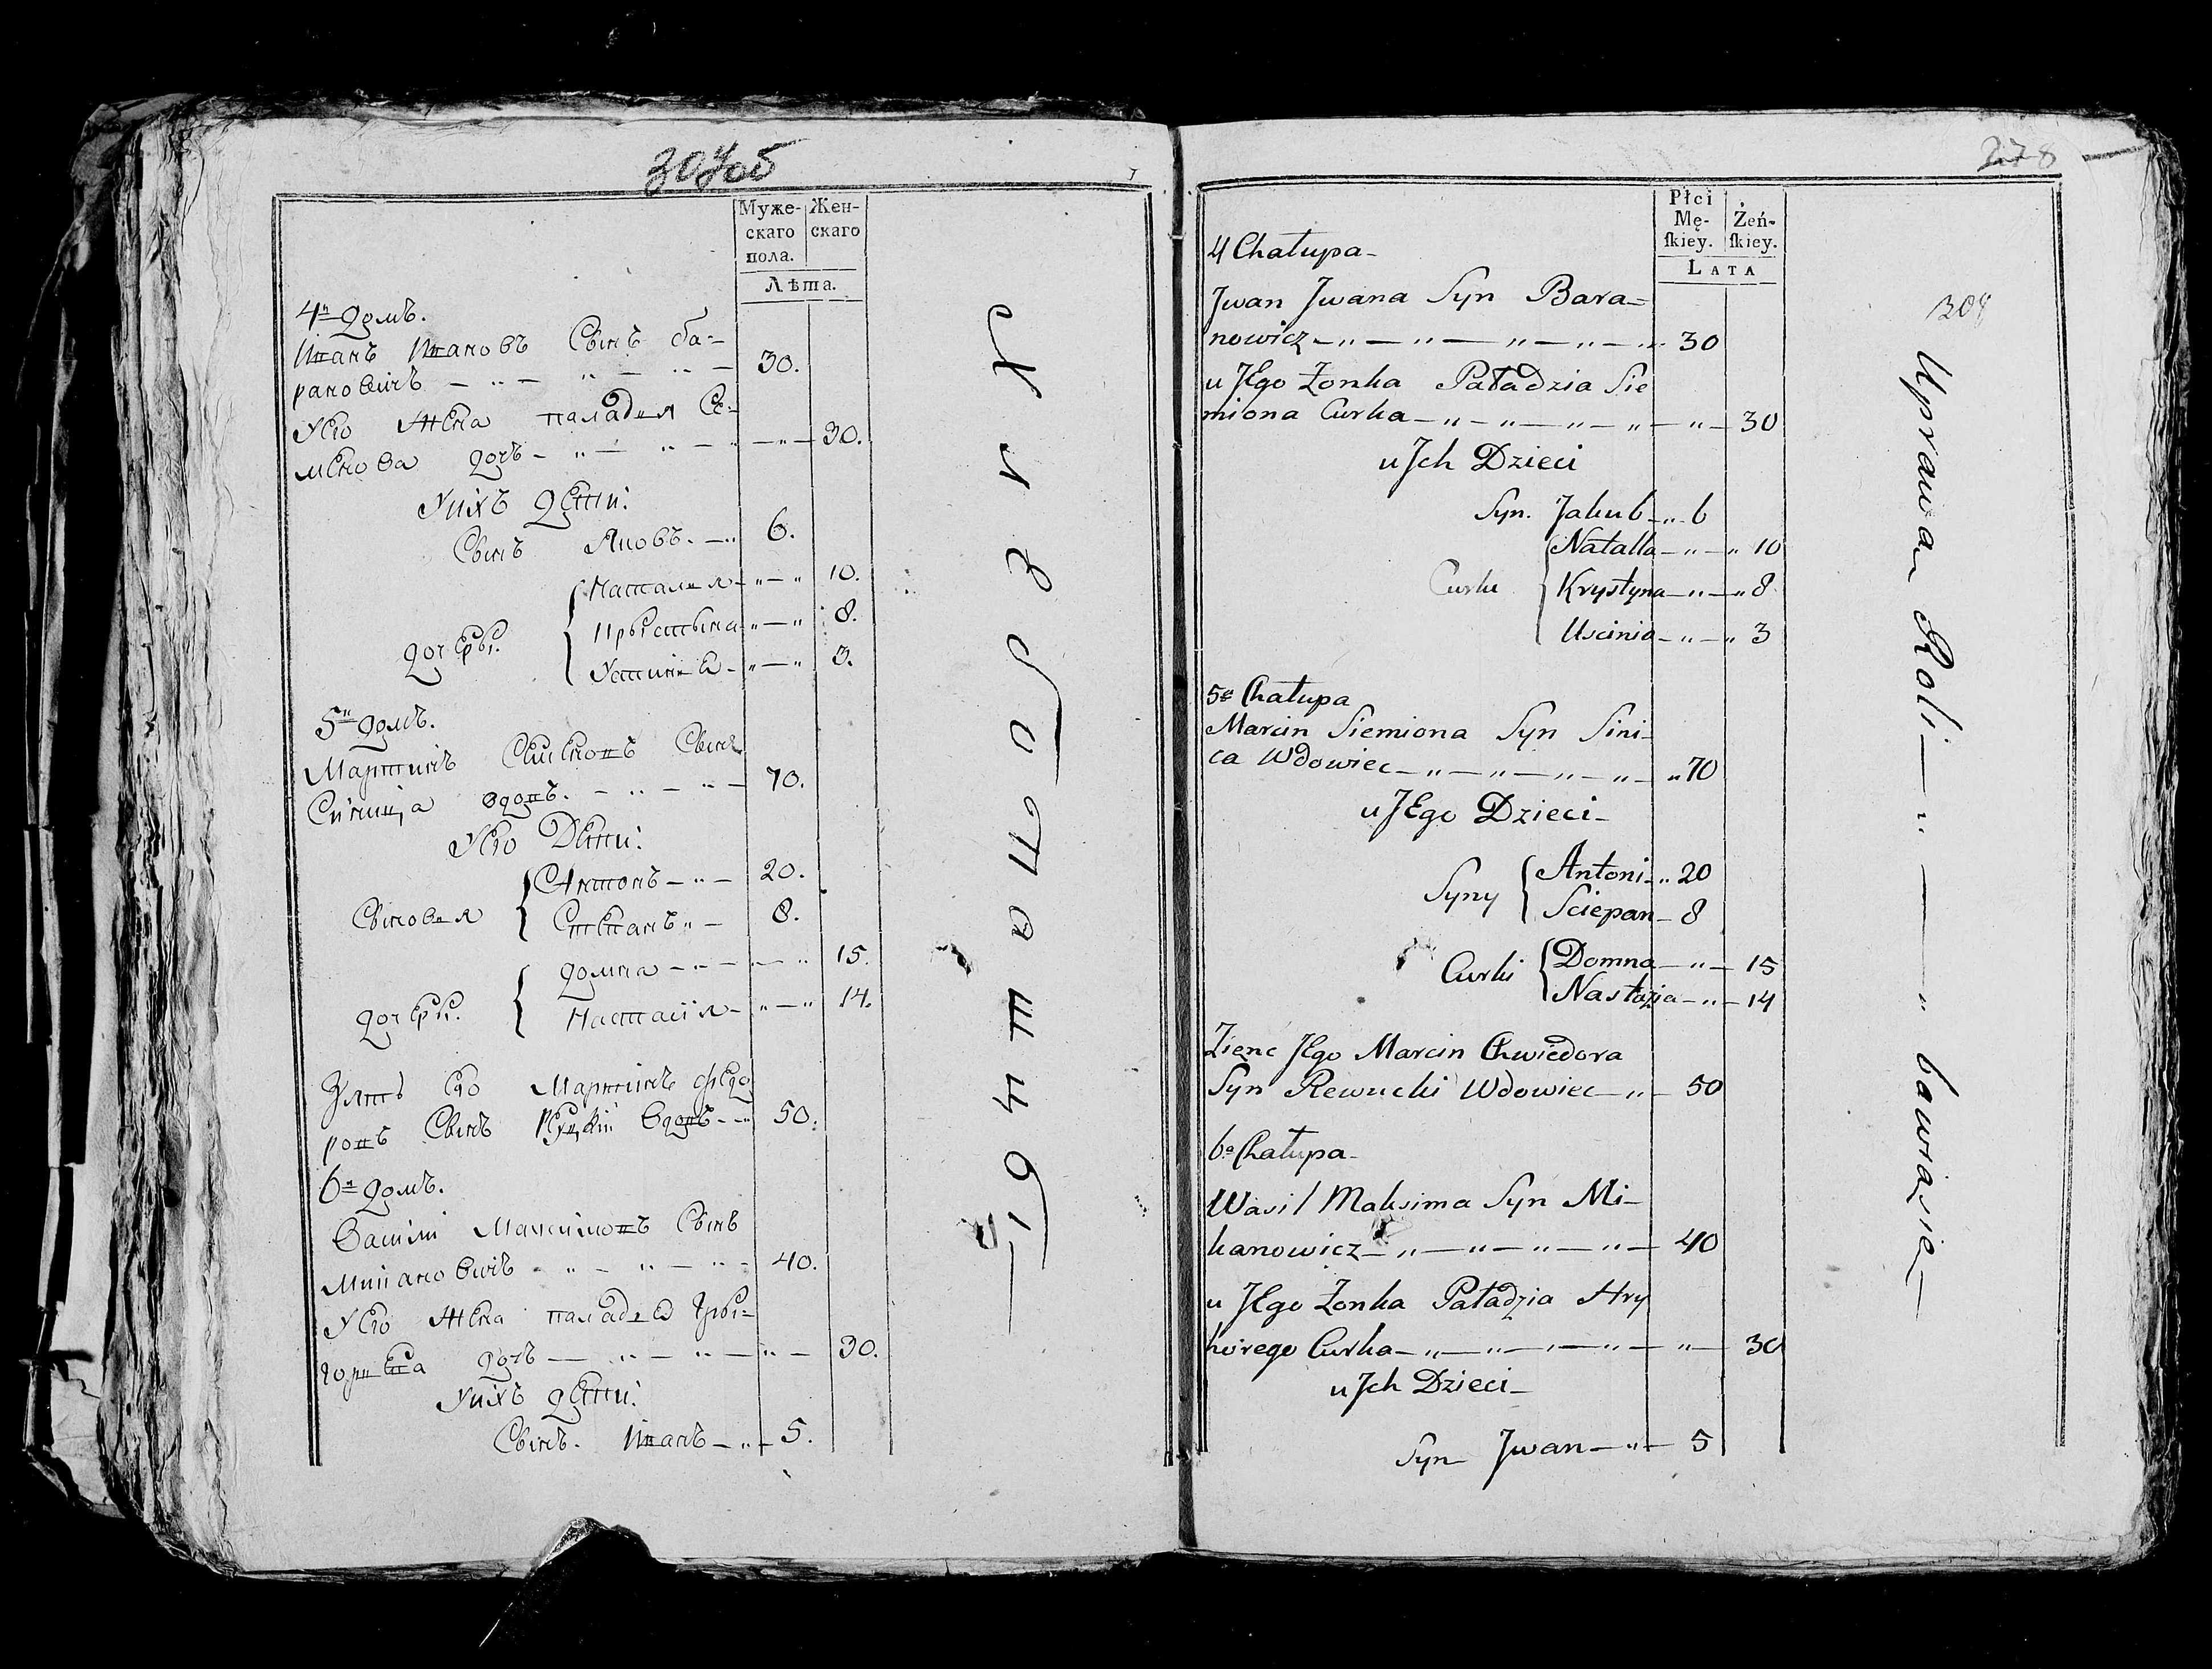 307об
Муже-
скаго
пола.
Жен-
скаго
Лѣта.
4й домъ.
Иванъ Ивановъ Сынъ Ба-
рановичъ — „ — „ — „ — 30.
Уего Жена паладея Се-
менова дочъ - „ — „ — „ — „ — 30.
Унихъ дети:
Сынъ Яковъ. — „ 6.
дочеры.
Наталея — „ — „ 10.
Крыстына „ — „ 8.
Устинея - „ — „ 3.
5й домъ.
Мартинъ Семеновъ Сынъ
Синица вдовъ. - „ — „ — 70.
Уего Дети:
Сыновея
Антонъ — „ — 20.
Степанъ „ — 8.
дочеры.
домна — „ — „ — „ 15.
Настасія — „ — „ 14.
Зять его Мартинъ федо
ровъ Сынъ Ревуцкій вдовъ - „ 50.
6й домъ.
Василій Максимовъ Сынъ
Микановичъ - „ — „ — „ - 40.
Уего Жена паладея Гры-
горыева дочъ — „ — „ — „ — 30.
Унихъ дети:
Сынъ. Иванъ — „ — 5.
278
308
Płci
Mę-
ſkiey.
Żeń-
ſkiey.
LATA
4 Chałupa -
Jwan Jwana Syn Bara-
nowicz — „ — „ — „ — „ — „ 30
u Jego Żonka Paładzia Sie
miona Curka — „ — „ — „ — „ — „ — 30
u Jch Dzieci
Syn. Jakub — „ 6
Curki
Natalla — „ — „ 10
Krystyna — „ — „ 8
Uscinia — „ — „ 3
5a Chałupa
Marcin Siemiona Syn Sini-
ca Wdowiec — „ — „ — „ — „ — „ 70
u JEgo Dzieci -
Syny
Antoni — „ 20
Sciepan — 8
Curki
Domna — „ — 15
Nastazia — „ — 14
Zienc JEgo Marcin Chwiedora
Syn Rewucki Wdowiec — „ — 50
6a Chałupa -
Wasil Maksima Syn Mi-
kanowicz — „ — „ — „ — „ — 40
u JEgo Żonka Paładzia Hry
horego Curka — „ — „ — „ — „ — „ — 30
u Jch Dzieci -
Syn - Jwan — „ — 5
Uprawa Roli — „ — „